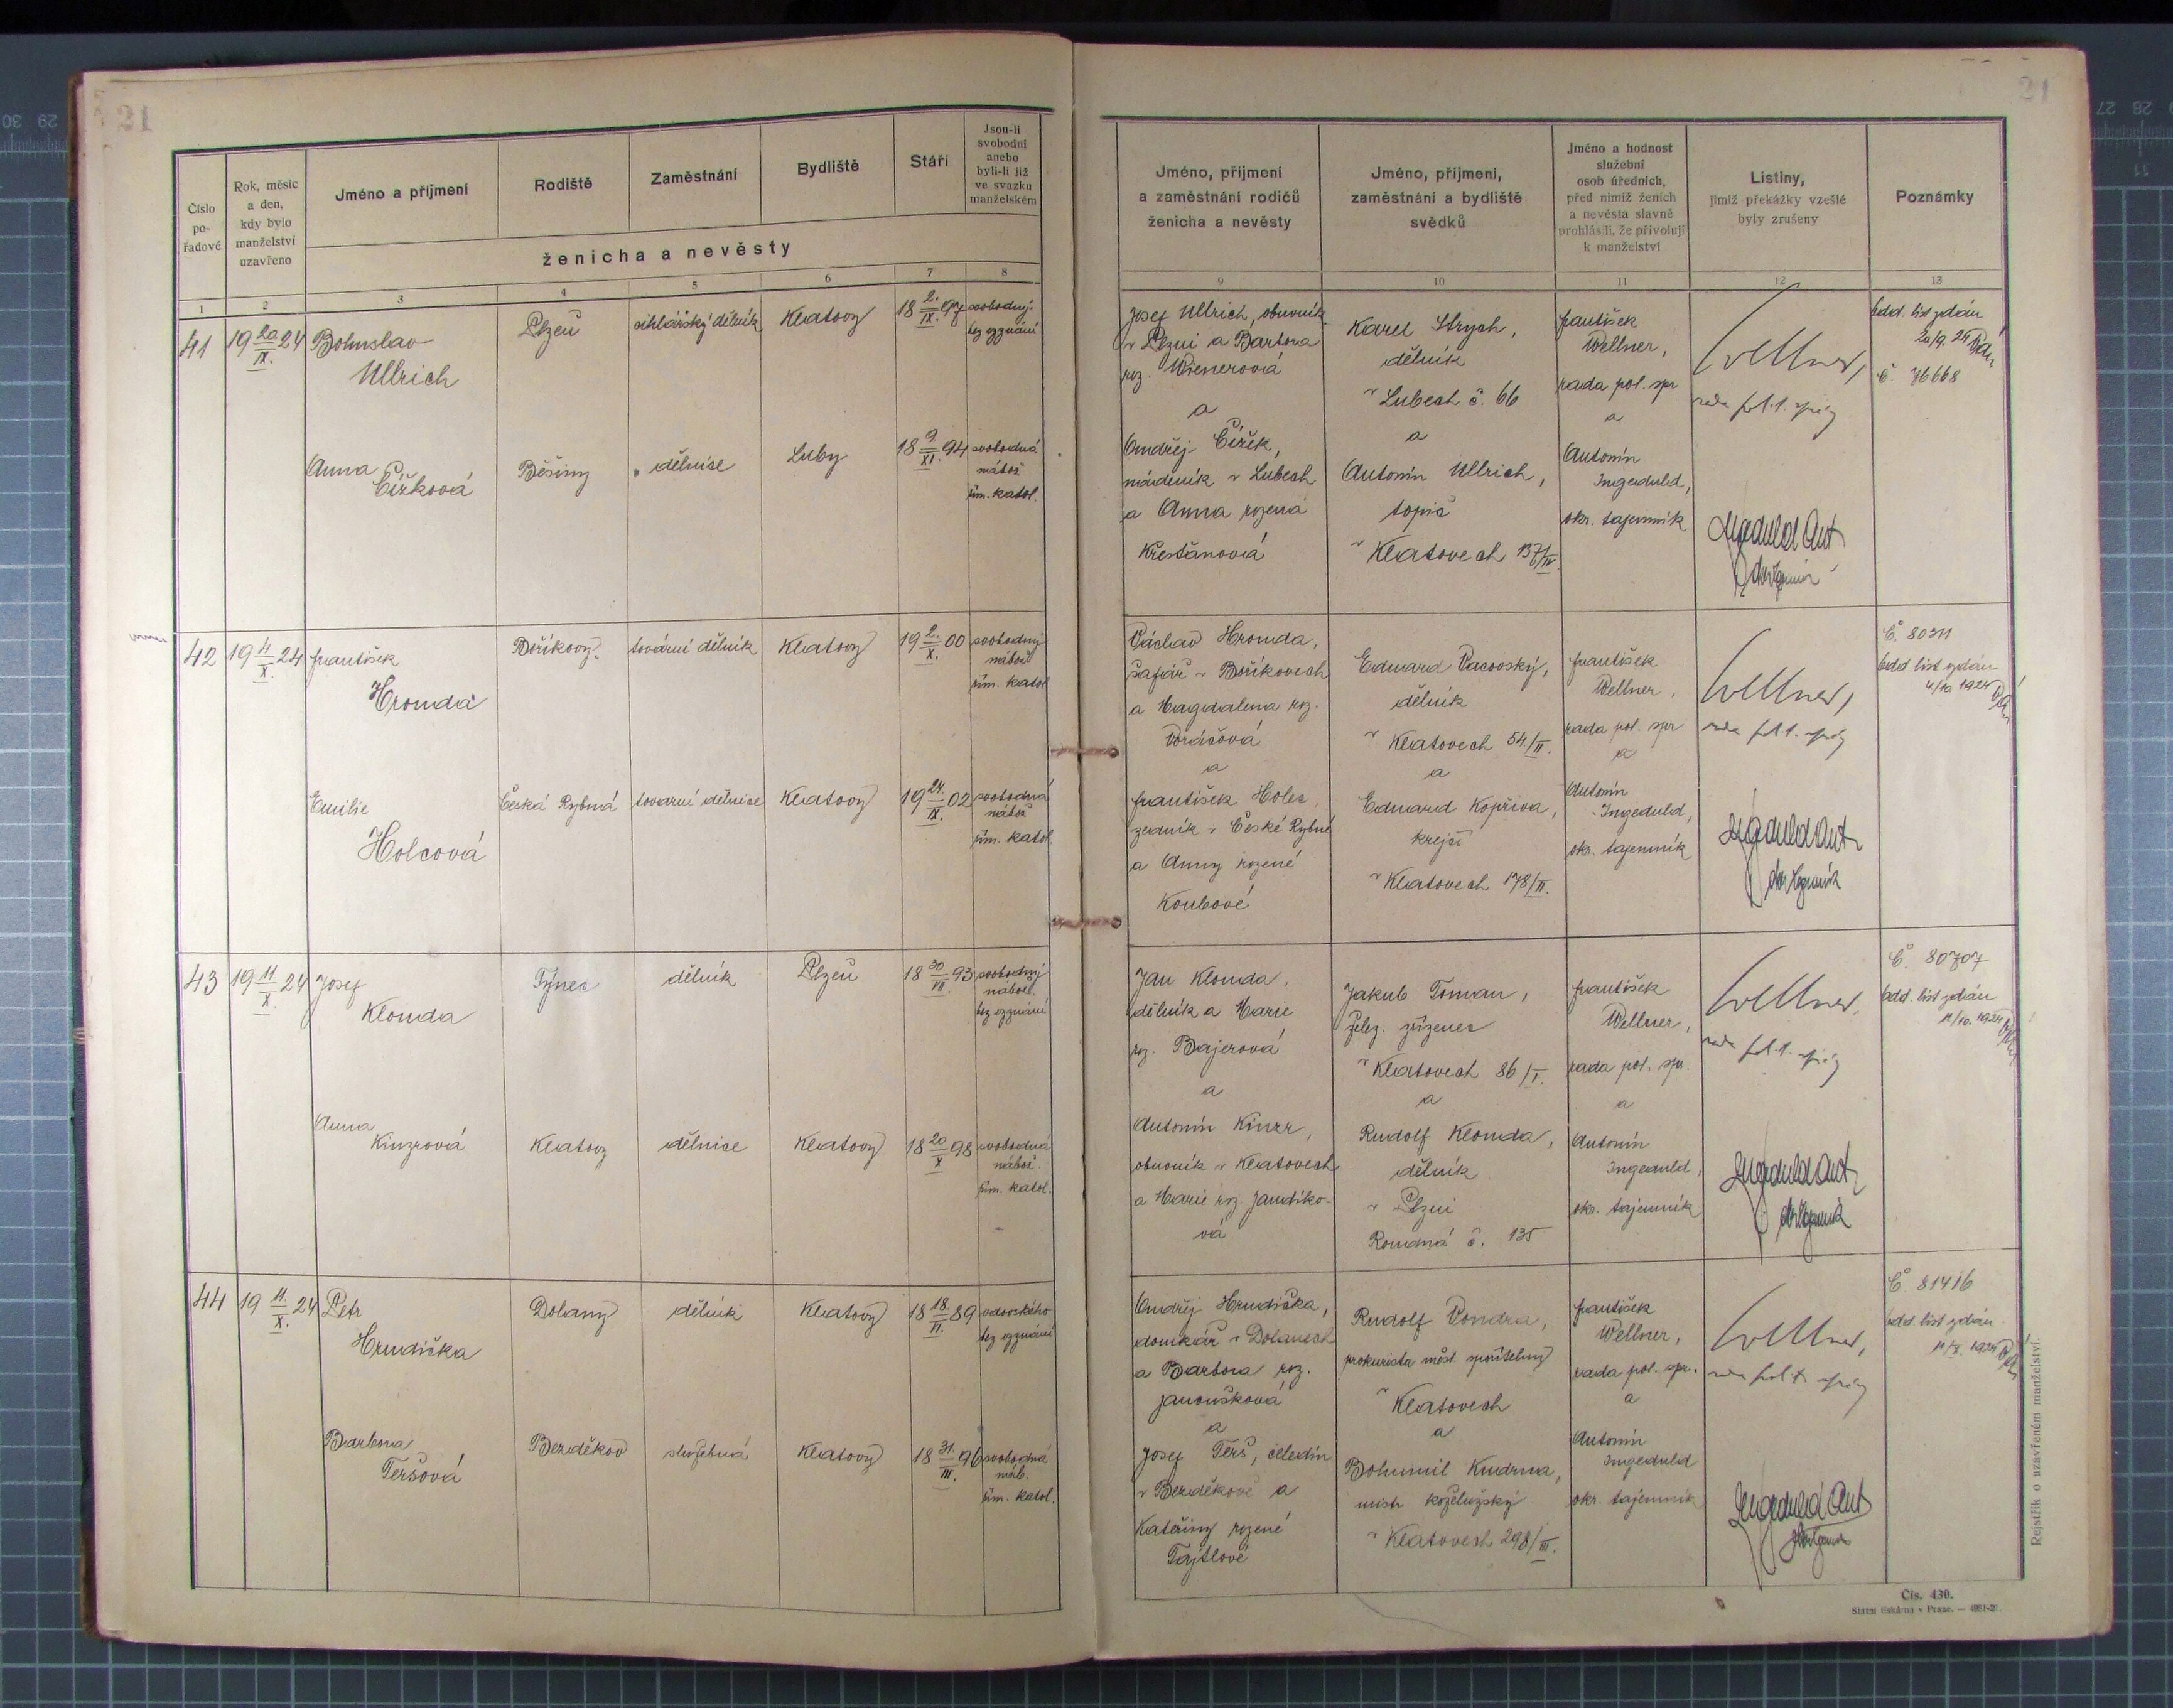 21
21
Číslo
po-
řadové
Rok, měsíc
a den,
kdy bylo
manželství
uzavřeno
Jméno a příjmení
Rodiště
Zaměstnání
Bydliště
Stáří
Jsou-li
svobodni
anebo
byli-li již
ve svazku
manželském
ženicha a nevěsty
Jméno, příjmení
a zaměstnání rodičů
ženicha a nevěsty
Jméno, příjmení,
zaměstnání a bydliště
svědků
Jméno a hodnost
služební
osob úředních,
před nimiž ženich
a nevěsta slavně
prohlásili, že přivolují
k manželství
Listiny,
jimiž překážky vzešlé
byly zrušeny
Poznámky
1 2 3 4 5 6 7 8 9 10 11 12 13
41
19 20./IX. 24
Bohuslav
Ullrich
Plzeň
cihlářský dělník
Klatovy
18 2./IX. 97
svobodný
bez vyznání
Anna
Čížková
Běšiny
dělnice
Luby
18 9./XI. 94
svobodná
nábož.
řím. katol.
Josef Ullrich, obuvník
v Plzni a Barbora
roz. Wienerová
a
Ondřej Čížek,
nádeník v Lubech
a Anna rozená
Křesťanová
Karel Strych,
dělník
v Lubech č. 66
a
Antonín Ullrich,
topič
v Klatovech 137/IV
František
Wellner,
rada pol. spr
a
Antonín
Ingeduld,
okr. tajemník
Wellner,
rada pol. správy
Ingeduld Ant
okr. tajemník
odd. list vydán
20/9. 24
č. 76668
42
19 4/X. 24
František
Hromda
Bořikovy
tovární dělník
Klatovy
19 2./X. 00
svobodný
nábož.
řím. katol
Emilie
Holcová
Česká Rybná
tovarní dělnice
Klatovy
19 24./IX. 02
svobodná
nábož
řím. katol.
Václav Hromda,
šafář v Bořikovech
a Magdalena roz.
Voráčová
a
František Holec,
zedník v České Rybné
a Anny rozené
Koubové
Eduard Vacovský,
dělník
v Klatovech 54/II.
a
Eduard Kopřiva,
krejčí
v Klatovech 178/II.
František
Wellner,
rada pol. spr
a
Antonín
Ingeduld,
okr. tajemník
Wellner,
rada pol. správy
Ingeduld Ant
okr. tajemník
Č. 80311
odd list vydán
4/10 1924
43
19 11/X. 24
Josef
Klomda
Týnec
dělník
Plzeň
18 30/VII. 93
svobodný
nábož.
bez vyznání
Anna
Kinzrová
Klatovy
dělnice
Klatovy
18 20/X 98
svobodná
nábož.
řím. katol.
Jan Klomda,
dělník a Marie
roz. Bajerová
a
Antonín Kinzr,
obuvník v Klatovech
a Marie roz. Jandíko-
vá
Jakub Toman,
želez. zřízenec
v Klatovech 86/I.
a
Rudolf Klomda,
dělník
v Plzni
Roudná č. 135
František
Wellner,
rada pol. spr.
a
Antonín
Ingeduld,
okr. tajemník
Wellner,
rada pol. správy
Ingeduld Ant
okr. tajemník
Č. 80707
odd. list vydán
11/10. 1924
44
19 11./X. 24
Petr
Hrudička
Dolany
dělník
Klatovy
18 18./VI. 89
vdovského
bez vyznání
Barbora
Teršová
Bezděkov
služebná
Klatovy
18 31./III. 96
svobodná
náb.
řím. katol.
Ondřej Hrudička,
domkář v Dolanech
a Barbora roz.
Janoušková
a
Josef Terš, čeledín
v Bezděkově a
Kateřiny rozené
Tajtlové
Rudolf Vondra,
prokurista měst. spořitelny
v Klatovech
a
Bohumil Kudrna,
mistr koželužský
v Klatovech 298/III.
František
Wellner,
rada pol. spr.
a
Antonín
Ingeduld
okr. tajemník
Wellner,
rada polit. správy
Ingeduld Ant
okr. tajemník
Č. 81416
odd list vydán
11/X. 1924
Rejstřík o uzavřeném manželství.
Čís. 430.
Státní tiskárna v Praze. — 4951-21.